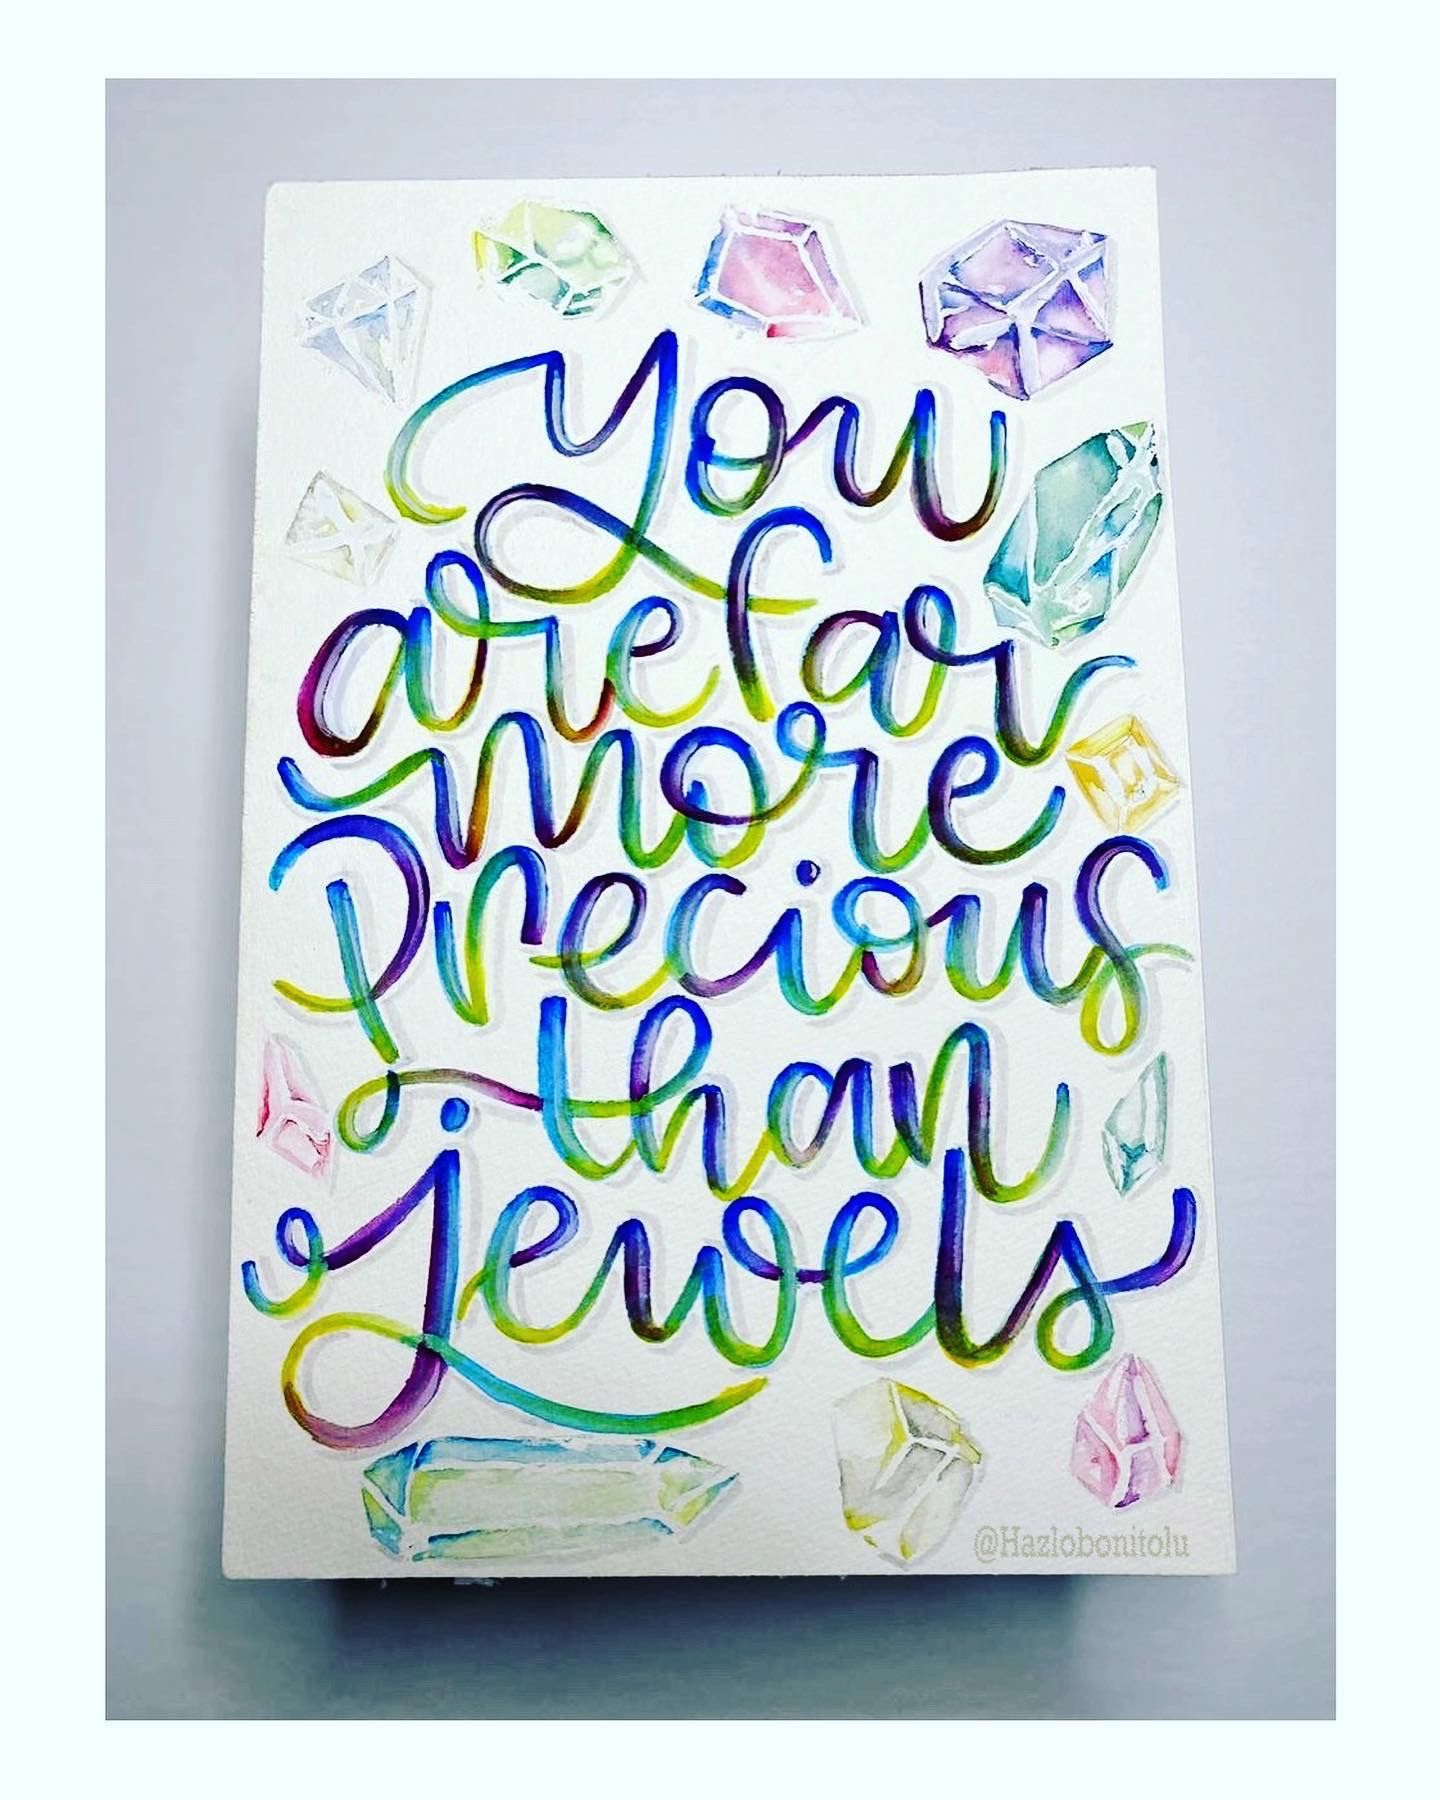 You
are far
more
Precious
than
jewels
@Hazlobonitolu